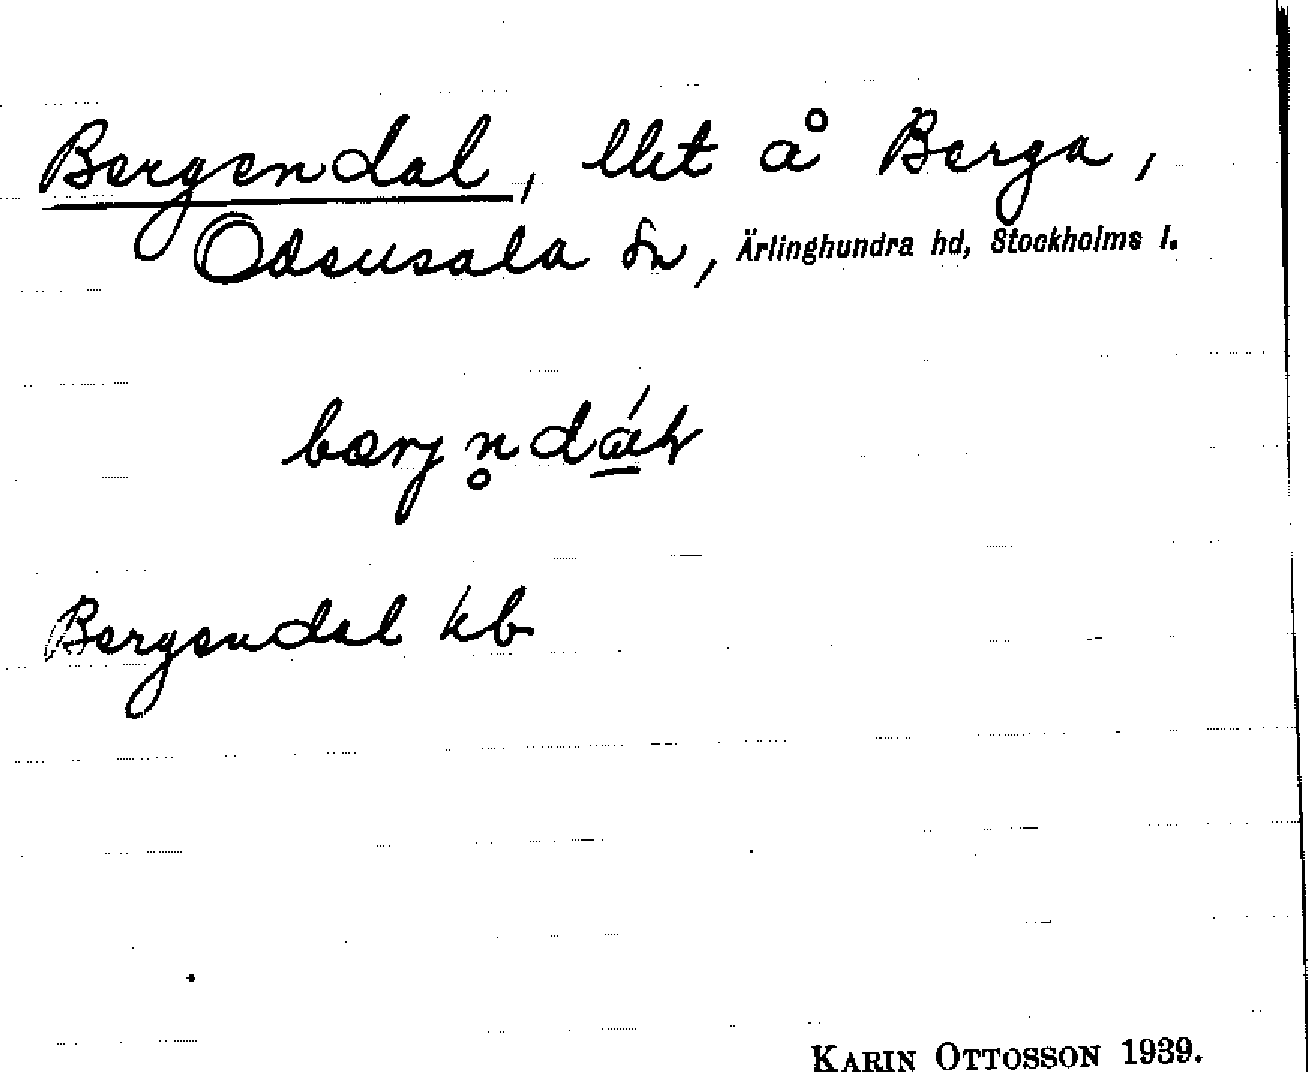 Bergendal, llet å Berga,
Odensala sn, Ärlinghundra hd, Stockholms l.
bærjn̥dá̱l
Bergendal kb
KARIN OTTOSSON 1939.